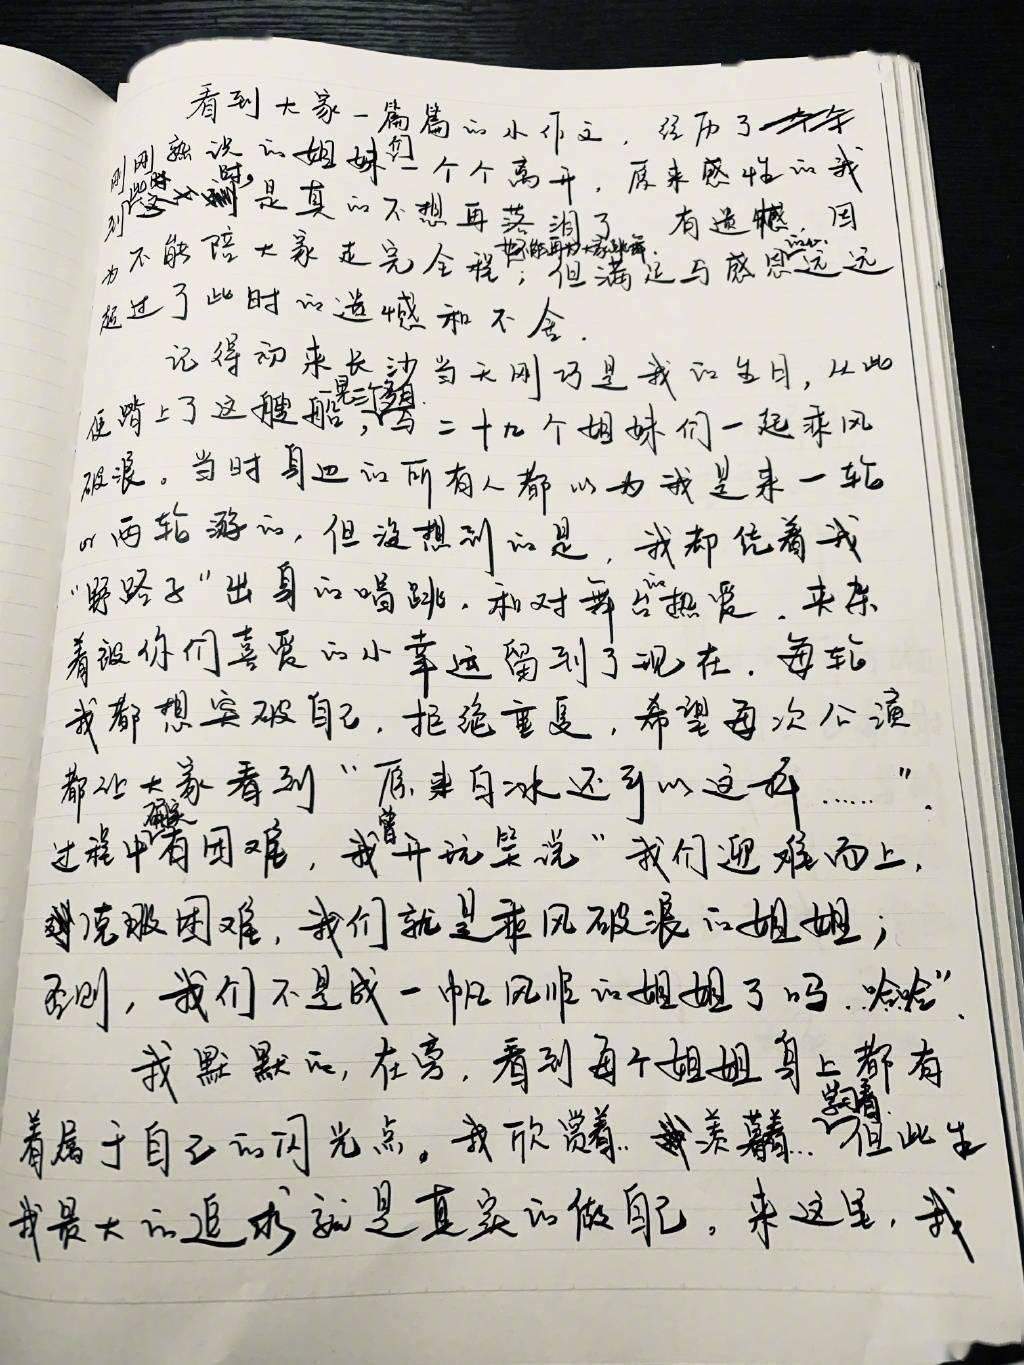 看到大家一篇篇的小作文，经历了
刚刚熟识的姐妹们一个个离开，原来感性的我
到此时此时，是真的不想再落泪了 有遗憾，因
为不能陪大家走完全程；但满足与感恩远远
超过了此时的遗憾和不舍．
记得初来长沙当天刚巧是我的生日，从此
便踏上了这艘船，一晃三个多月，与二十九个姐妹们一起乘风
破浪。当时身边的所有人都以为我是来一轮
or两轮游的，但没想到的是，我却凭着我
“野路子”出身的唱跳．和对舞台的热爱．夹杂
着被你们喜爱的小幸运留到了现在．每轮
我都想突破自己，拒绝重复，希望每次公演
都让大家看到“原来白冰还可以这样……”．
过程中确实有困难，我曾开玩笑说“我们迎难而上，
克服困难，我们就是乘风破浪的姐姐；
否则，我们不是成一帆风顺的姐姐了吗．哈哈”．
我默默的，在旁，看到每个姐姐身上都有
着属于自己的闪光点。我欣赏着..羡慕着...学习着．但此生
我最大的追求就是真实的做自己．来这里，我